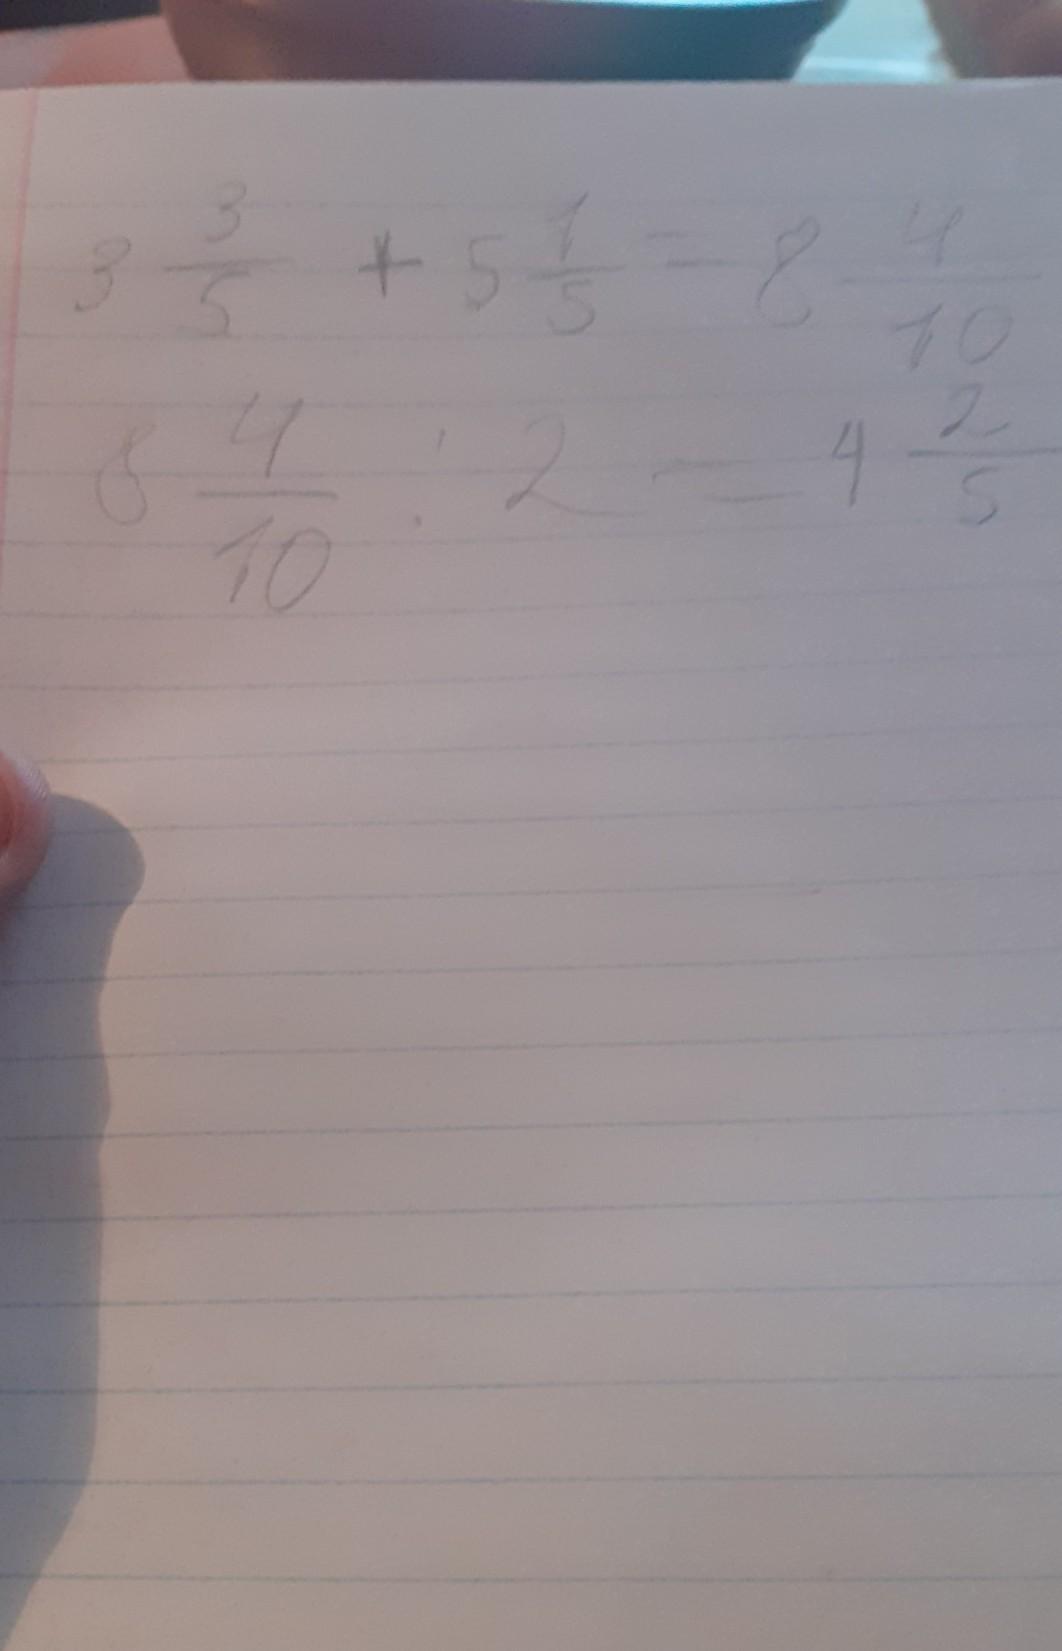 3 3/5 + 5 1/5 = 8 4/10
8 4/10 : 2 = 4 2/5